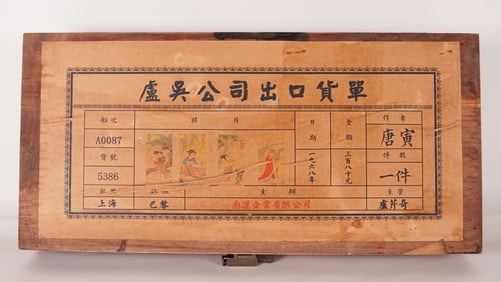 盧吳公司出口貨單
船次 照片 日期 金額 作者
A0087 一九六八年 三百八十元 唐寅
貨號 件數
5386 一件
主辦 主管
上海 巴黎 南運企業有限公司 盧芹齋